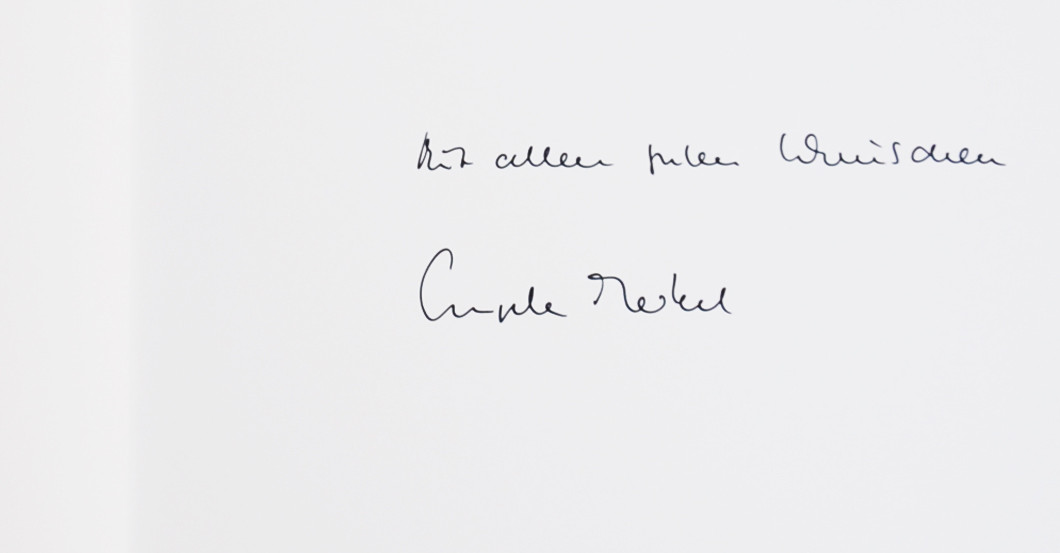 Mit allen guten Wünschen
Angela Merkel